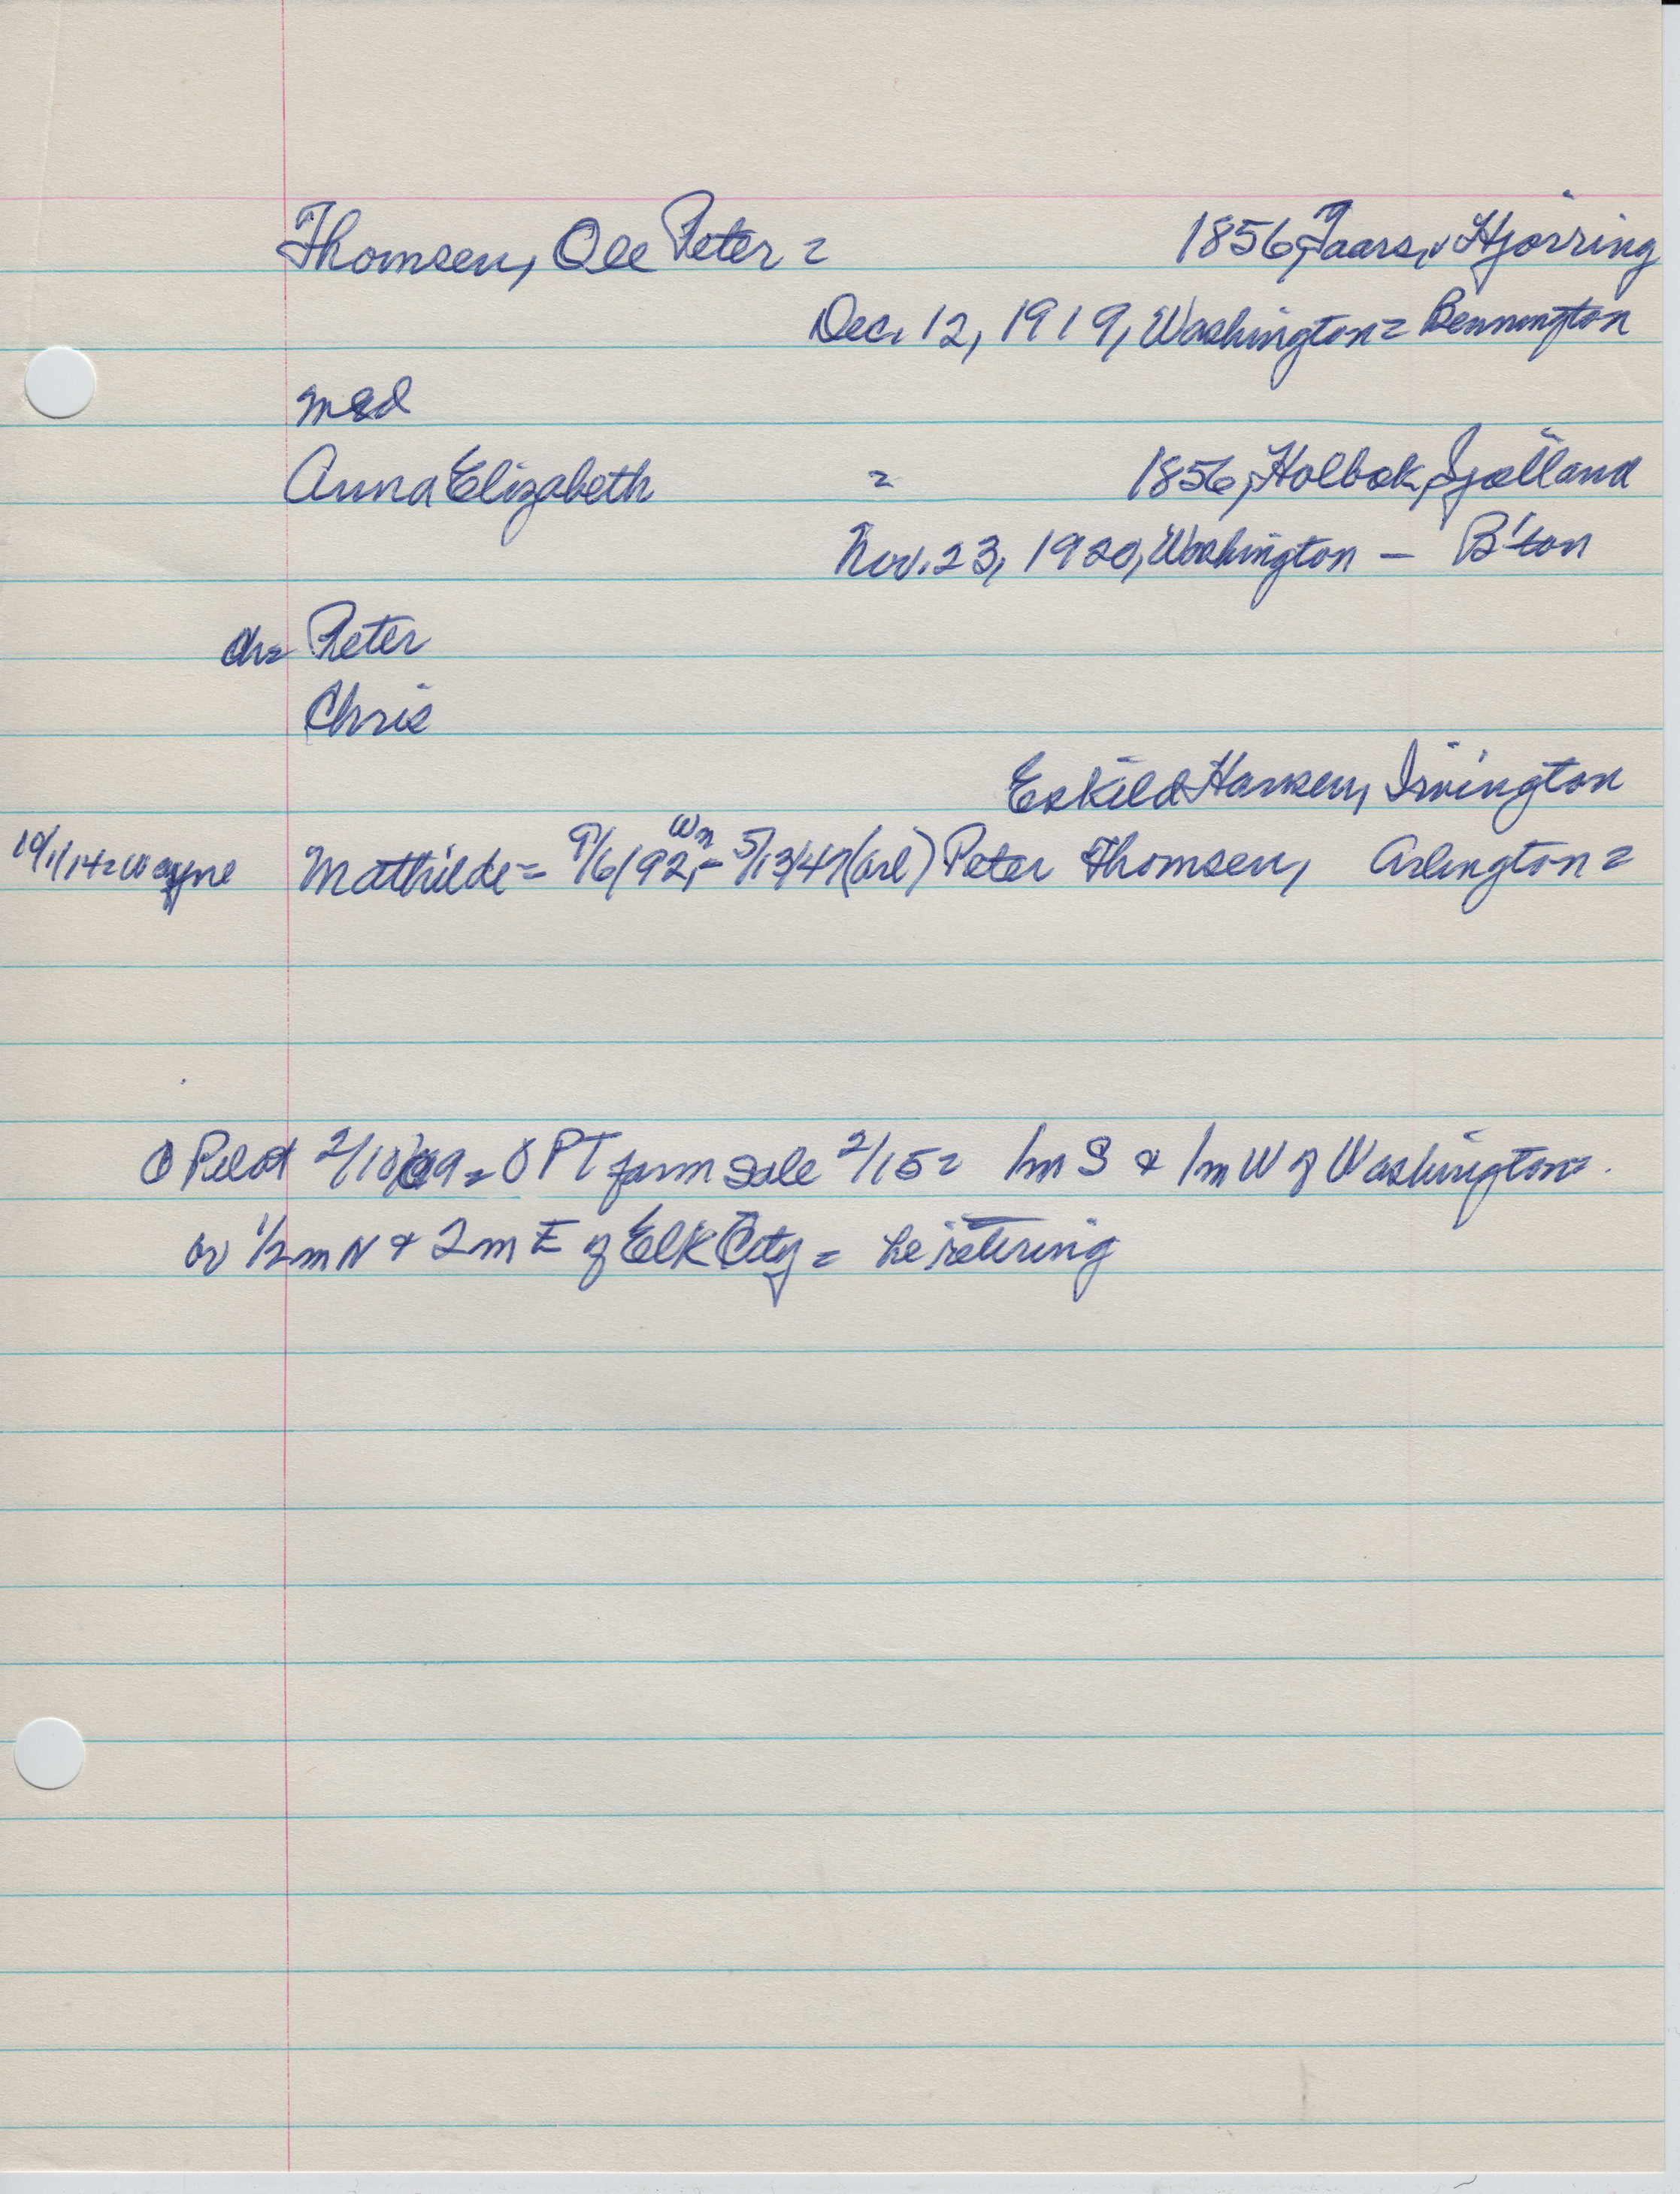 Thomsen, Ole Peter = 1856, Taars, Hjörring
Dec. 12, 1919, Washington = Bennington
med
Anna Elizabeth = 1856, Holbok, Sjælland
Nov. 23, 1920, Washington — B'ton
ch= Peter
Chris
Eskild Hansen, Irvington
10/1/14=Wayne Mathilde = 9/6/92, Wn - 5/13/47 (Arl) Peter Thomsen, Arlington =
Pilot 2/10/09 = O PT farm sale 2/15 = 1m S & 1m W of Washington = .
or 1/2 m N & 2 m E of Elk City = he retiring